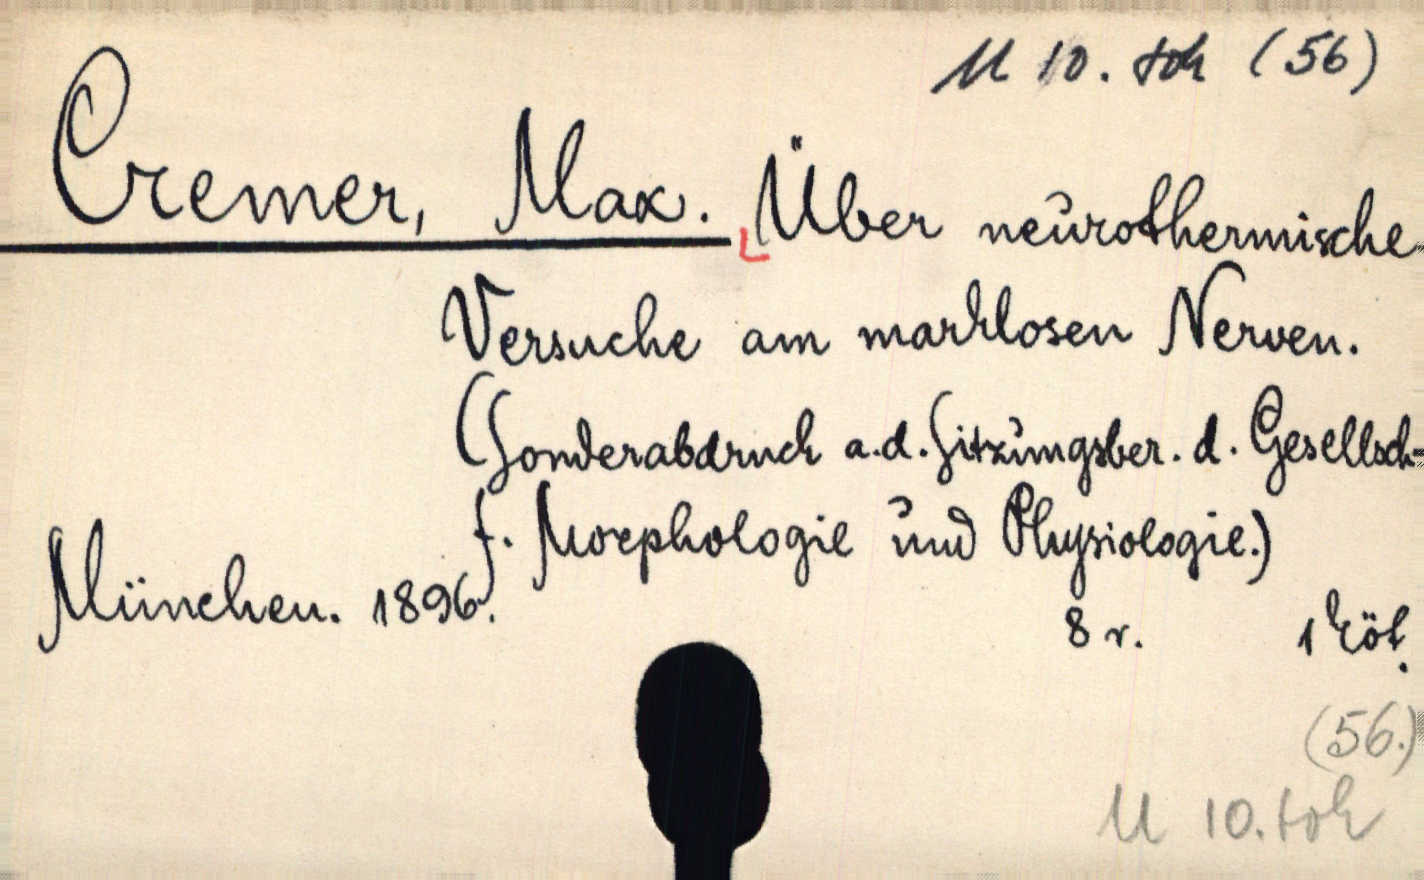 M 10. tok (56)
Cremer, Max. Über neurothermische
Versuche am marklosen Nerven.
(Sonderabdruck a.d. Sitzungsber. d. Gesellsch.
f. Morphologie und Physiologie.)
München. 1896.
8 r. 1 köt.
(56.)
M 10. tok